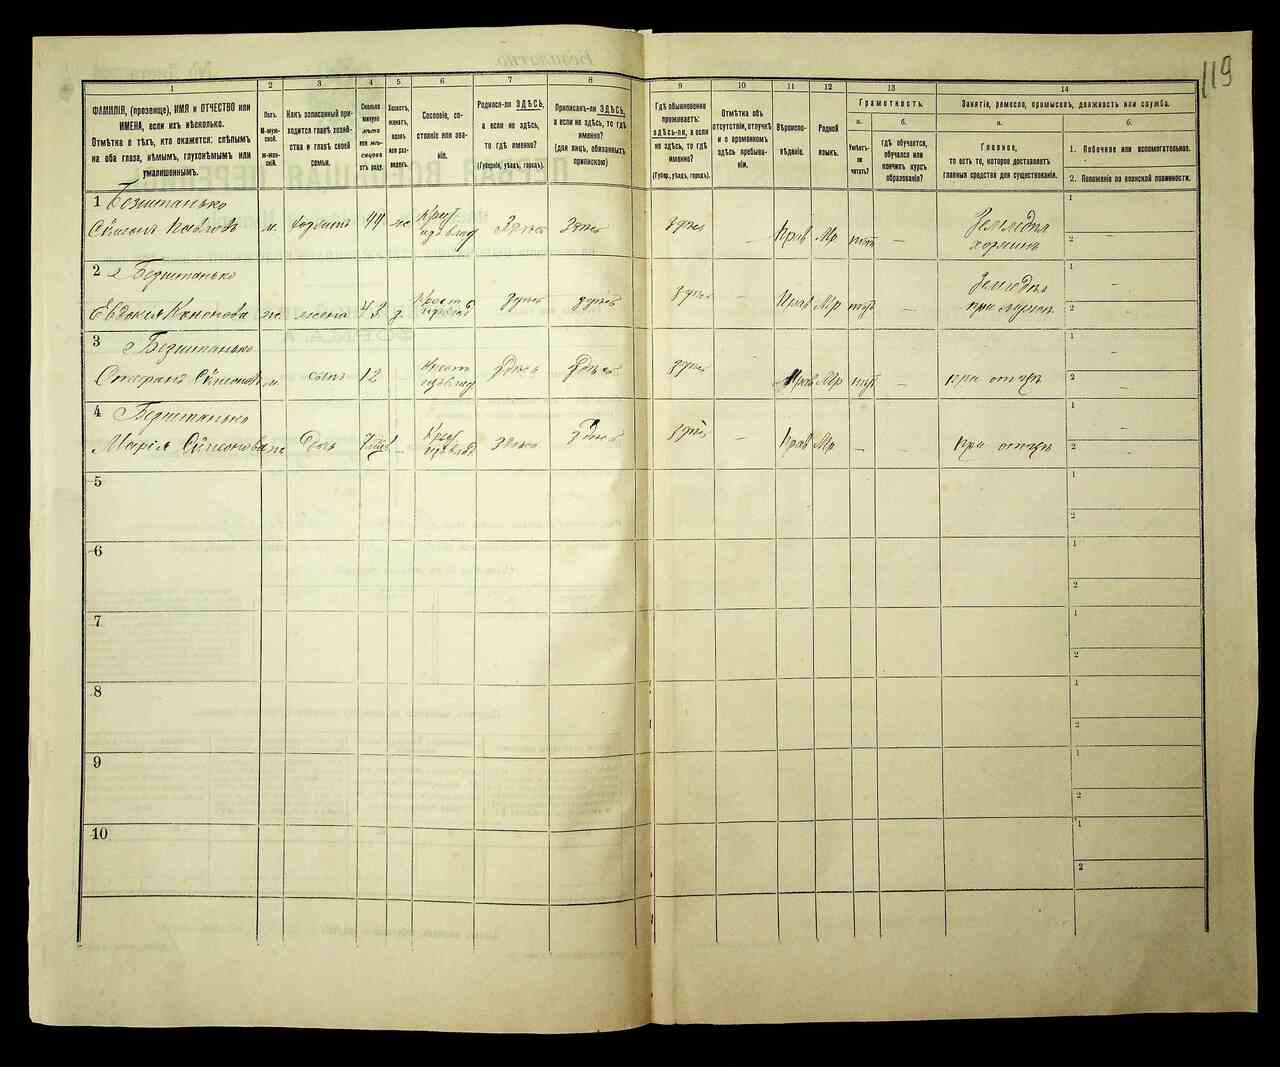 119
1
2
3
4
5
6
7
8
9
10
11
12
13
14
ФАМИЛІЯ, (прозвище), ИМЯ и ОТЧЕСТВО или
ИМЕНА, если ихъ нѣсколько.
Отмѣтка о тѣхъ, кто окажется: слѣпымъ
на оба глаза, нѣмымъ, глухонѣмымъ или
умалишеннымъ.
Полъ.
М-муж-
ской.
Ж-жен-
скій.
Какъ записанный при-
ходится главѣ хозяй-
ства и главѣ своей
семьи.
Сколько
минуло
лѣтъ
или мѣ-
сяцевъ
отъ роду.
Холостъ,
женатъ,
вдовъ
или раз-
веденъ.
Сословіе, со-
стояніе или зва-
ніе.
Родился-ли ЗДѢСЬ,
а если не здѣсь,
то гдѣ именно?
(Губернія, уѣздъ, городъ).
Приписанъ-ли ЗДѢСЬ,
а если не здѣсь, то гдѣ
именно?
(для лицъ, обязанныхъ
припискою)
Гдѣ обыкновенно
проживаетъ:
здѣсь-ли, а если
не здѣсь, то гдѣ
именно?
(Губер., уѣздъ, городъ).
Отмѣтка объ
отсутствіи, отлучкѣ
и о временномъ
здѣсь пребыва-
ніи.
Вѣроиспо-
вѣданіе.
Родной
языкъ.
Грамотность.
а.
Умѣетъ-
ли
читать?
б.
гдѣ обучается,
обучался или
кончилъ курсъ
образованія?
Занятіе, ремесло, промыселъ, должность или служба.
а.
Главное,
то есть то, которое доставляетъ
главныя средства для существованія.
б.
1. Побочное или вспомогательное.
2. Положеніе по воинской повинности.
1 Безштанько
Сѵмеонъ Павловъ м. хозяинъ 44 Здѣсь Здѣсь здѣсь — Прав Мр —
Земледѣл
хозяинъ
1
2 —
2 Безштанько
Евдокія жена 43 здѣсь здѣсь здѣсь — Прав Мр —
при мужѣ
1 —
2 —
3 Безштанько
Стефанъ м. сынъ 12 Здѣсь Здѣсь здѣсь Прав Мр — при отцѣ
1 —
2 —
4 Безштанько
Марія Сѵмеонова ж дочь — здѣсь здѣсь здѣсь — Прав Мр — — при отцѣ
1 —
2 —
5
1
2
6
1
2
7
1
2
8
1
2
9
1
2
10
1
2